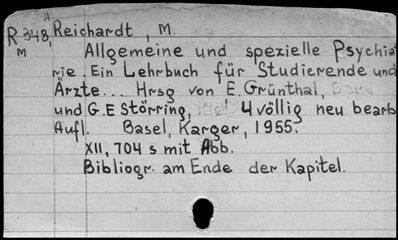 A.
R 348, Reichardt, M.
M
Allgemeine und spezielle Psychia
rie. Ein Lehrbuch für Studierende und
Ärzte... Hrsg von E. Grünthal,
und G.E Störring, 4 völlig neu bearb
Aufl. Basel, Karger, 1955.
XII, 704 s mit Abb.
Bibliogr. am Ende der Kapitel.